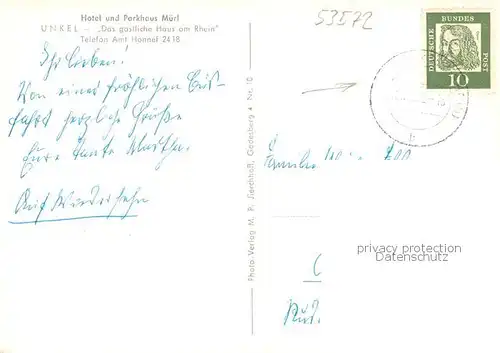 Hotel und Parkhaus Mürl
UNKEL - „Das gastliche Haus am Rhein"
Telefon Amt Honnef 2418
Ihr Lieben!
Von einer fröhlichen Bus-
fahrt herzliche Grüße
Eure Tante Martha.
Auf Wiedersehn
Photo-Verlag M. P. Bierchhoff, Godesberg Nr. 10
53572
DEUTSCHE BUNDES POST
10
Familie
privacy protection
Datenschutz